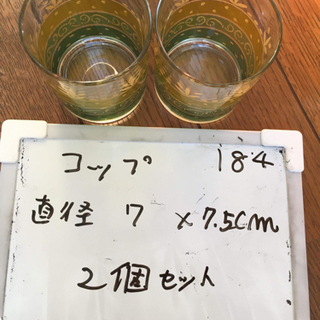 コップ 184
直径 7 x 7.5cm
2個セット